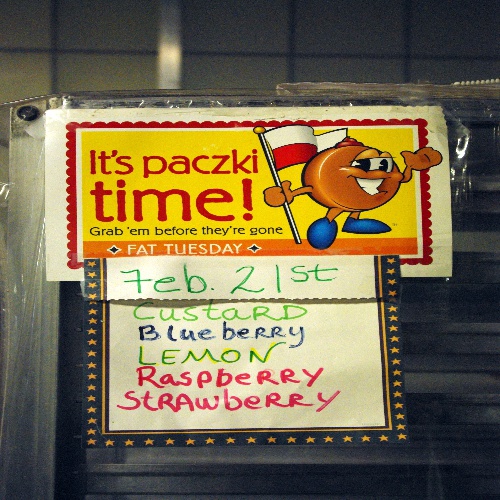 It's paczki
time!
Grab 'em before they're gone
FAT TUESDAY
Feb. 21st
CustaRD
Blueberry
LEMON
RaspbeRRY
StRAwbeRRY